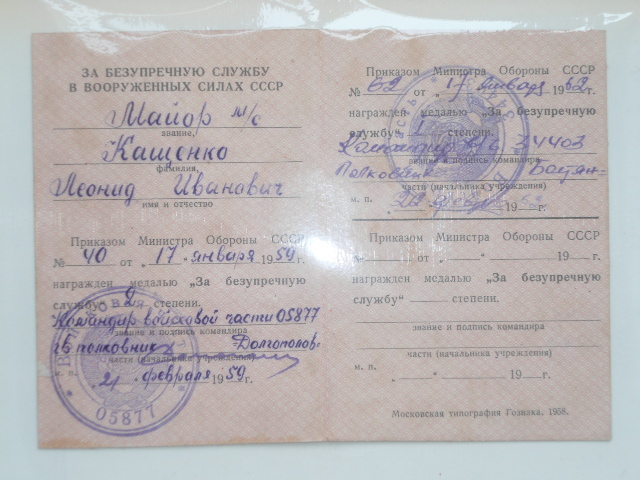 ЗА БЕЗУПРЕЧНУЮ СЛУЖБУ
В ВООРУЖЕННЫХ СИЛАХ СССР
Майор м/с
звание,
Кащенко
фамилия,
Леонид Иванович
имя и отчество
Приказом Министра Обороны СССР
№ 40 от „17" января 1959 г.
награжден медалью „За безупречную
службу" степени.
Командир войсковой части 05877
звание и подпись командира
полковник Долгополов
части (начальника учреждения)
21 февраля 1959 г.
05877
Приказом Министра Обороны СССР
№ 62 от „17" января 1962 г.
награжден медалью „За безупречную
службу" степени.
Командир в/ч 34403
звание и подпись командира
Полковник
части (начальника учреждения)
м. п. 22 февр 19 г.
Приказом Министра Обороны СССР
№ от „ " 19 г.
награжден медалью „За безупречную
службу" степени.
звание и подпись командира
части (начальника учреждения)
м. п. „ " 19 г.
Московская типография Гознака. 1958.